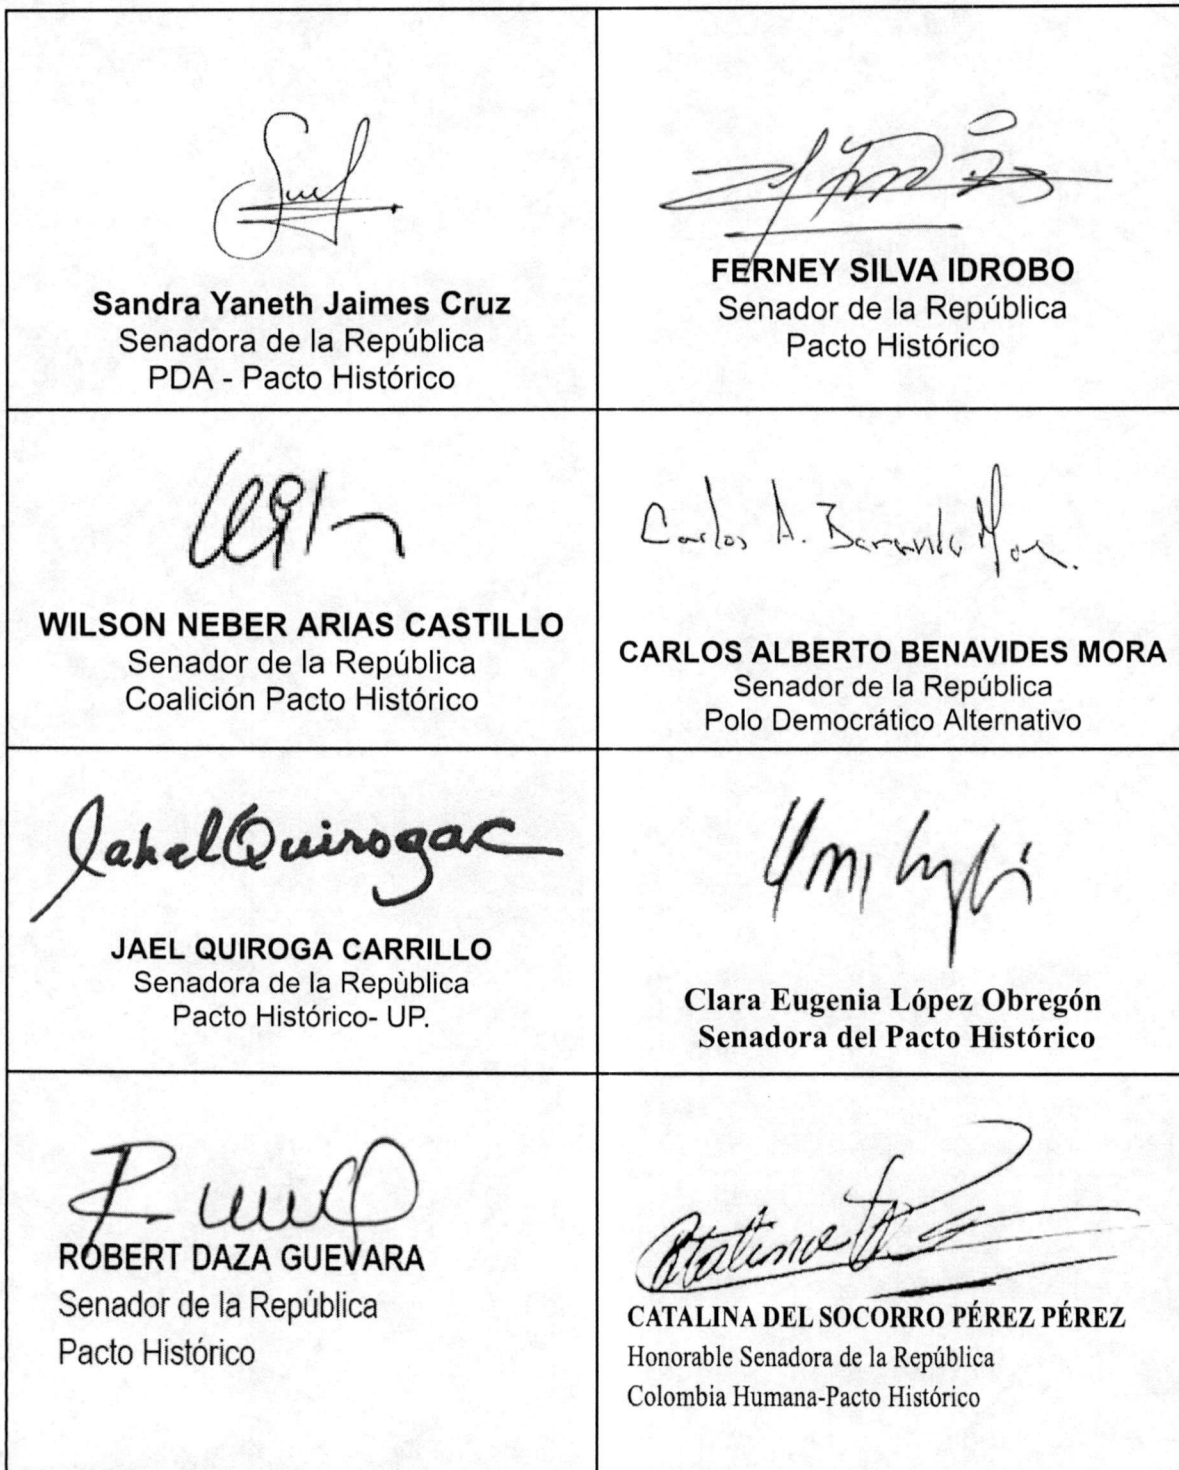 Sandra Yaneth Jaimes Cruz
Senadora de la República
PDA - Pacto Histórico
FERNEY SILVA IDROBO
Senador de la República
Pacto Histórico
WILSON NEBER ARIAS CASTILLO
Senador de la República
Coalición Pacto Histórico
Carlos A.
CARLOS ALBERTO BENAVIDES MORA
Senador de la República
Polo Democrático Alternativo
JahelQuirogaC
JAEL QUIROGA CARRILLO
Senadora de la Repùblica
Pacto Histórico- UP.
Clara Eugenia López Obregón
Senadora del Pacto Histórico
ROBERT DAZA GUEVARA
Senador de la República
Pacto Histórico
Catalina
CATALINA DEL SOCORRO PÉREZ PÉREZ
Honorable Senadora de la República
Colombia Humana-Pacto Histórico